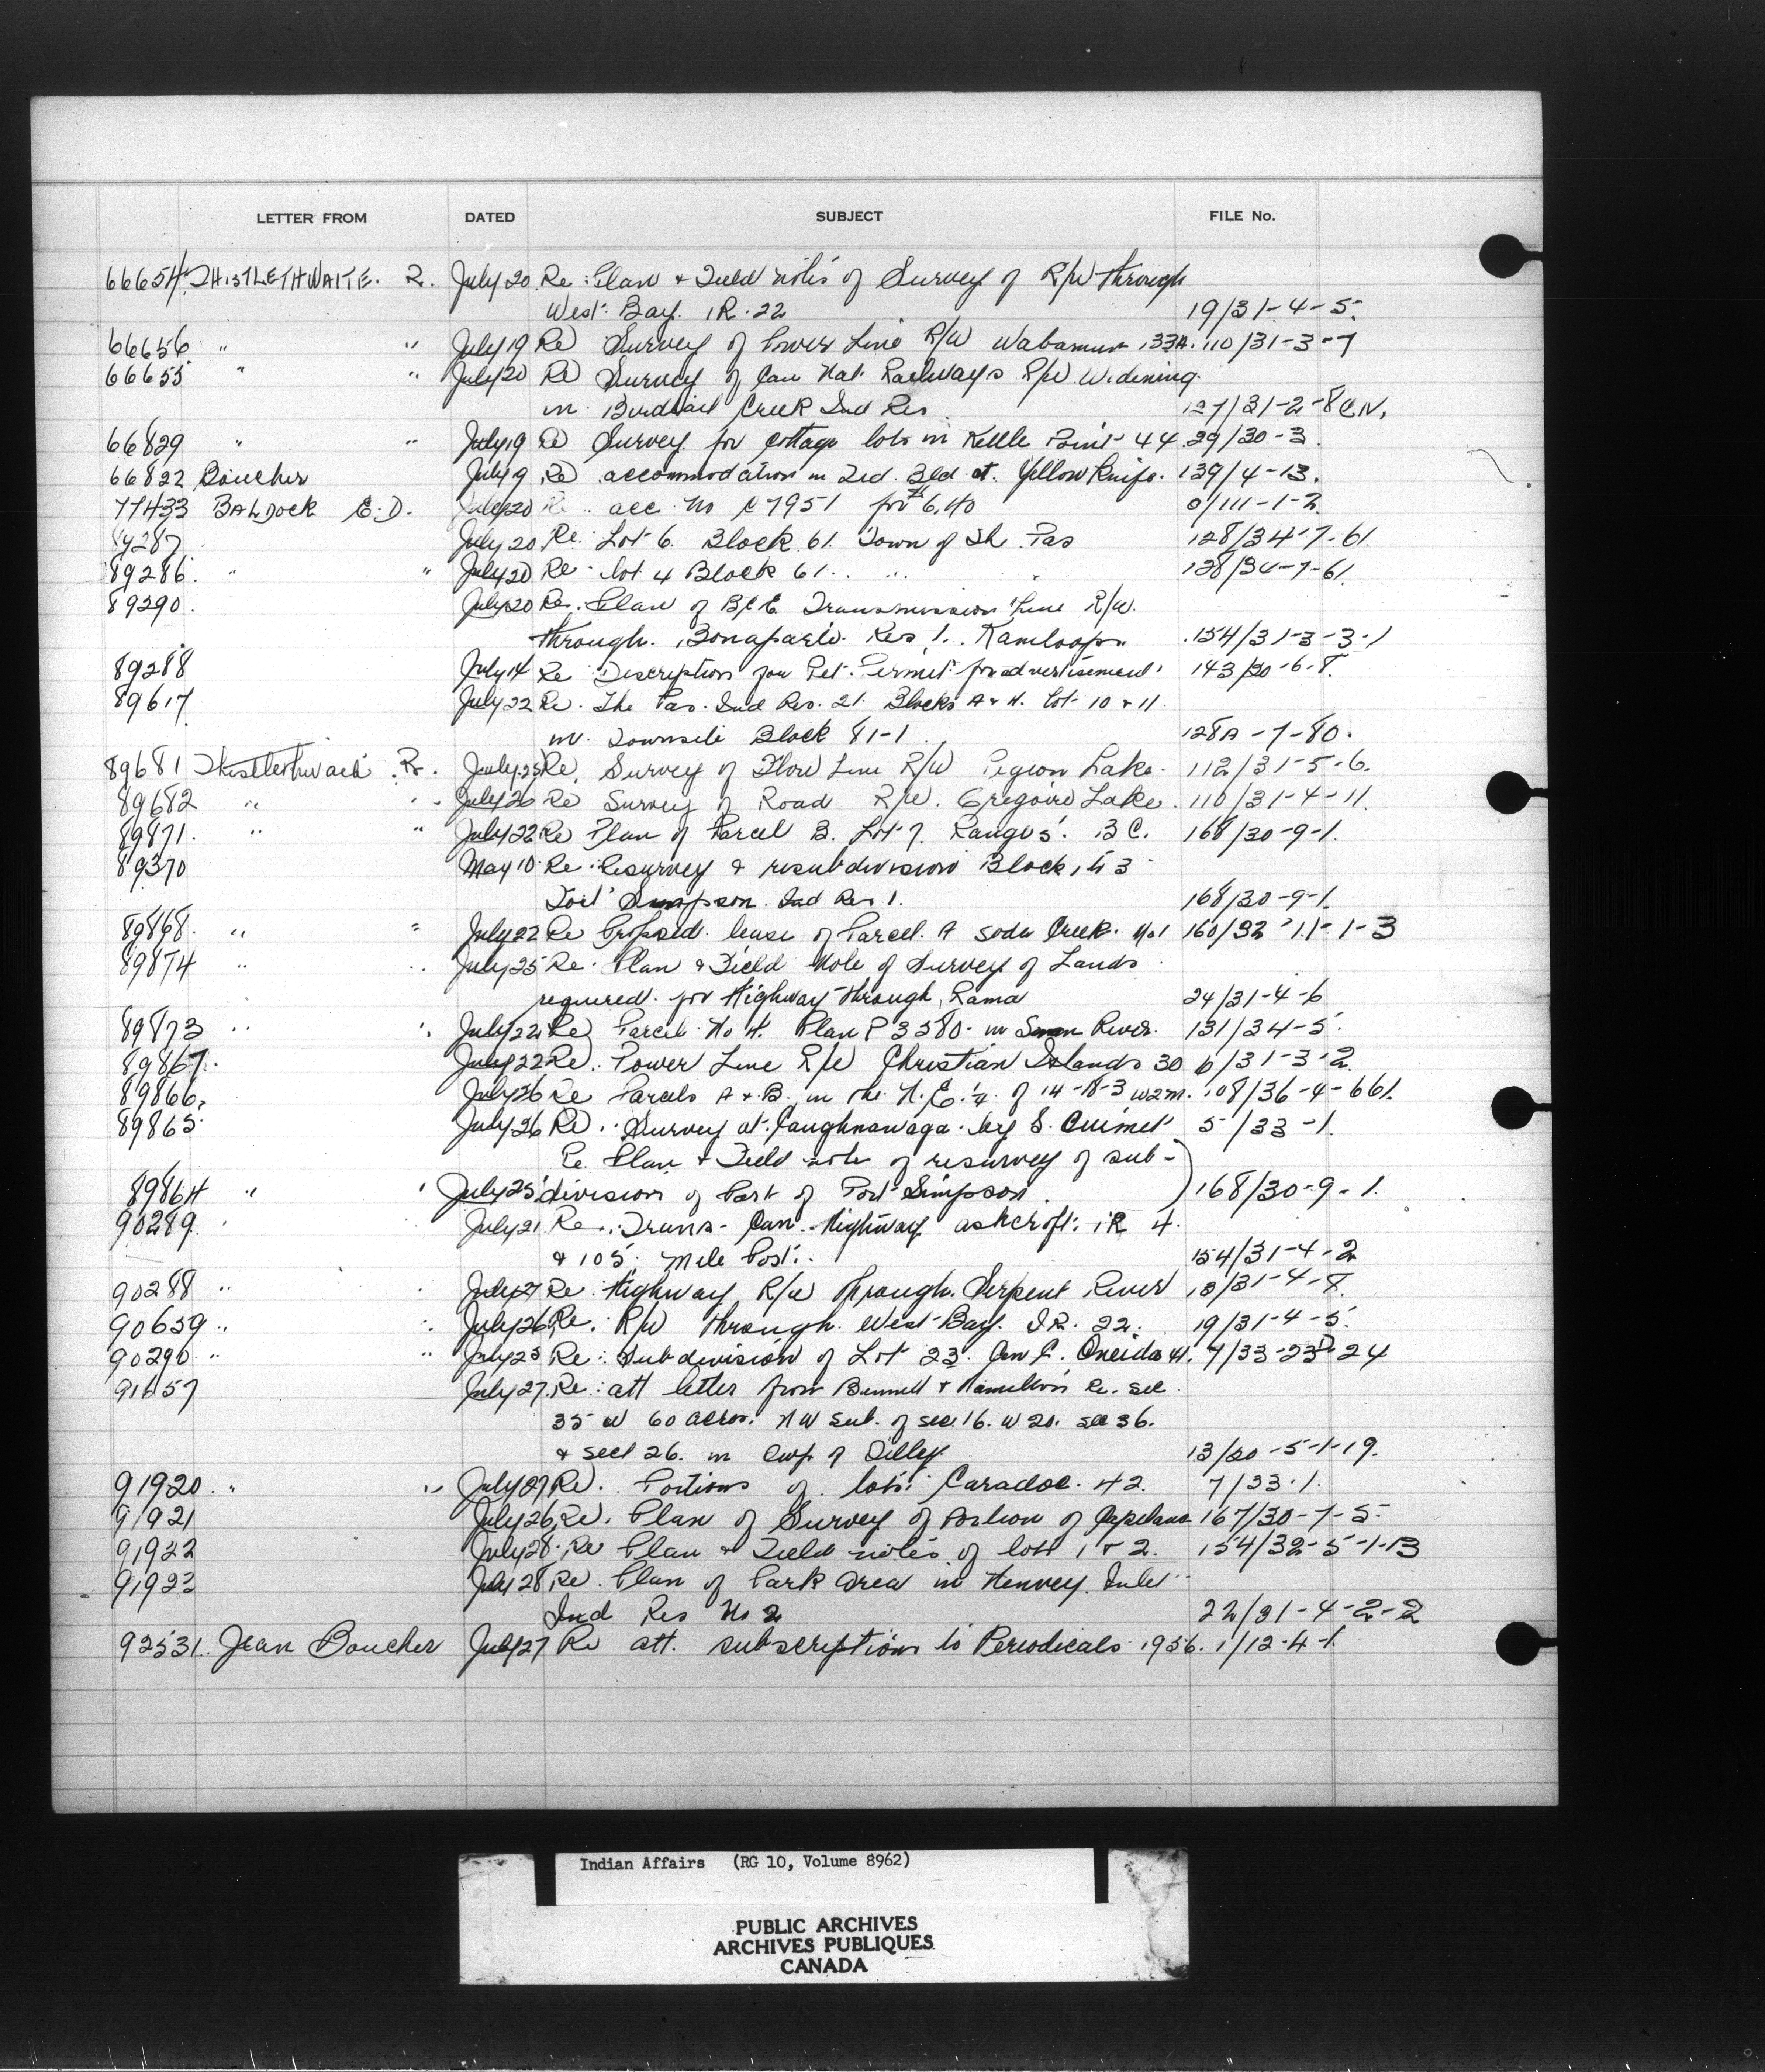 LETTER FROM DATED SUBJECT FILE No.
66654 THISTLETHWAITE. R. July 20 Re: Plan & Field notes of Survey of R/W through
West Bay. IR. 22 19/31-4-5.
66656 " " July 19 Re Survey of Power Line R/W Wabamun 133A. 110/31-3-7
66655 " " July 20 Re Survey of Can Nat. Railways R/W Widening
in Birdtail Creek Ind Res 127/31-2-8 C.N.
66829 " " July 19 Re Survey for Cottage lots in Kettle Point 44 29/30-3.
66822 Boucher July 9 Re accommodation in Fed. Bld at Yellow Knife. 139/4-13.
77433 BALDOCK E.D. July 20 Re acc. No C7951 for $6.40 0/111-1-2.
89287 July 20 Re: Lot 6. Block 61. Town of The Pas 128/34-7-61.
89286. " " July 20 Re. lot 4 Block 61. 128/34-7-61.
89290. July 20 Re. Plan of B.C.E. Transmission Line R/W.
through. Bonaparte. Res 1. Kamloops. 154/31-3-3-1
89288 July 14 Re Description for Pet. Permit for advertisement 143/30-6-8.
89617 July 22 Re. The Pas. Ind Res. 21. Blocks A & H. Lot 10 & 11
in. Townsite Block 81-1 128A-7-80.
89681 Thistlethwaite R. July 25 Re. Survey of Flow Line R/W Pigeon Lake. 112/31-5-6.
89682 " " July 26 Re Survey of Road R/W. Gregoire Lake. 110/31-4-11.
89871. " " July 22 Re Plan of Parcel B. Lot 7. Range 5. B C. 168/30-9-1.
89370 May 10 Re: Resurvey & resubdivision Block 1 to 3
Fort Simpson. Ind Res 1. 168/30-9-1.
89868. " " July 22 Re Proposed. lease of Parcel. A Soda Creek. No1 160/32-11-1-3
89874 " " July 25 Re. Plan & Field Note of Survey of Lands
required. for Highway through, Rama 24/31-4-6
89873 " " July 22 Re Parcel No H. Plan P 3580. in Swan River. 131/34-5.
89867. July 22 Re. Power Line R/W Christian Islands 30 6/31-3-2.
89866. July 26 Re Parcels A & B. in the N.E. 1/4 of 14-18-3 W2M. 108/36-4-661.
89865 July 26 Re. Survey at. Caughnawaga. by S. Ouimet 5/33-1.
Re. Plan & Field note of resurvey of sub-
89864 " " July 25 division of Part of Port Simpson. 168/30-9-1.
90289. July 21 Re. Trans-Can. Highway ashcroft. IR 4.
& 105. Mile Post. 154/31-4-2
90288 " July 27 Re. Highway R/W through. Serpent River 13/31-4-8.
90659 " " July 26 Re. R/W through. West Bay. I.R. 22. 19/31-4-5.
90290 " " July 25 Re: Subdivision of Lot 23. Con C. Oneida 41. 7/33-23D-24
91657 July 27. Re: att letter from Bennett & Hamilton Re. Sec.
35 W 60 acres. NW sub. of sec. 16. W 20. sec 36.
& sect 26. in twp of Dilley 13/20-5-1-19.
91920. " " July 27 Re. Portions of lots. Caradoc. 42. 7/33.1.
91921 July 26 Re. Plan of Survey of Portion of Capilano 167/30-7-5.
91922 July 28. Re Plan & Field notes of lots 1 & 2. 154/32-5-1-13
91923 July 28 Re. Plan of Park Area in Henvey Inlet
Ind Res No 2 22/31-4-2-2
92531. Jean Boucher July 27 Re att. subscription to Periodicals. 1956. 1/12-4-1.
Indian Affairs (RG 10, Volume 8962)
PUBLIC ARCHIVES
ARCHIVES PUBLIQUES
CANADA